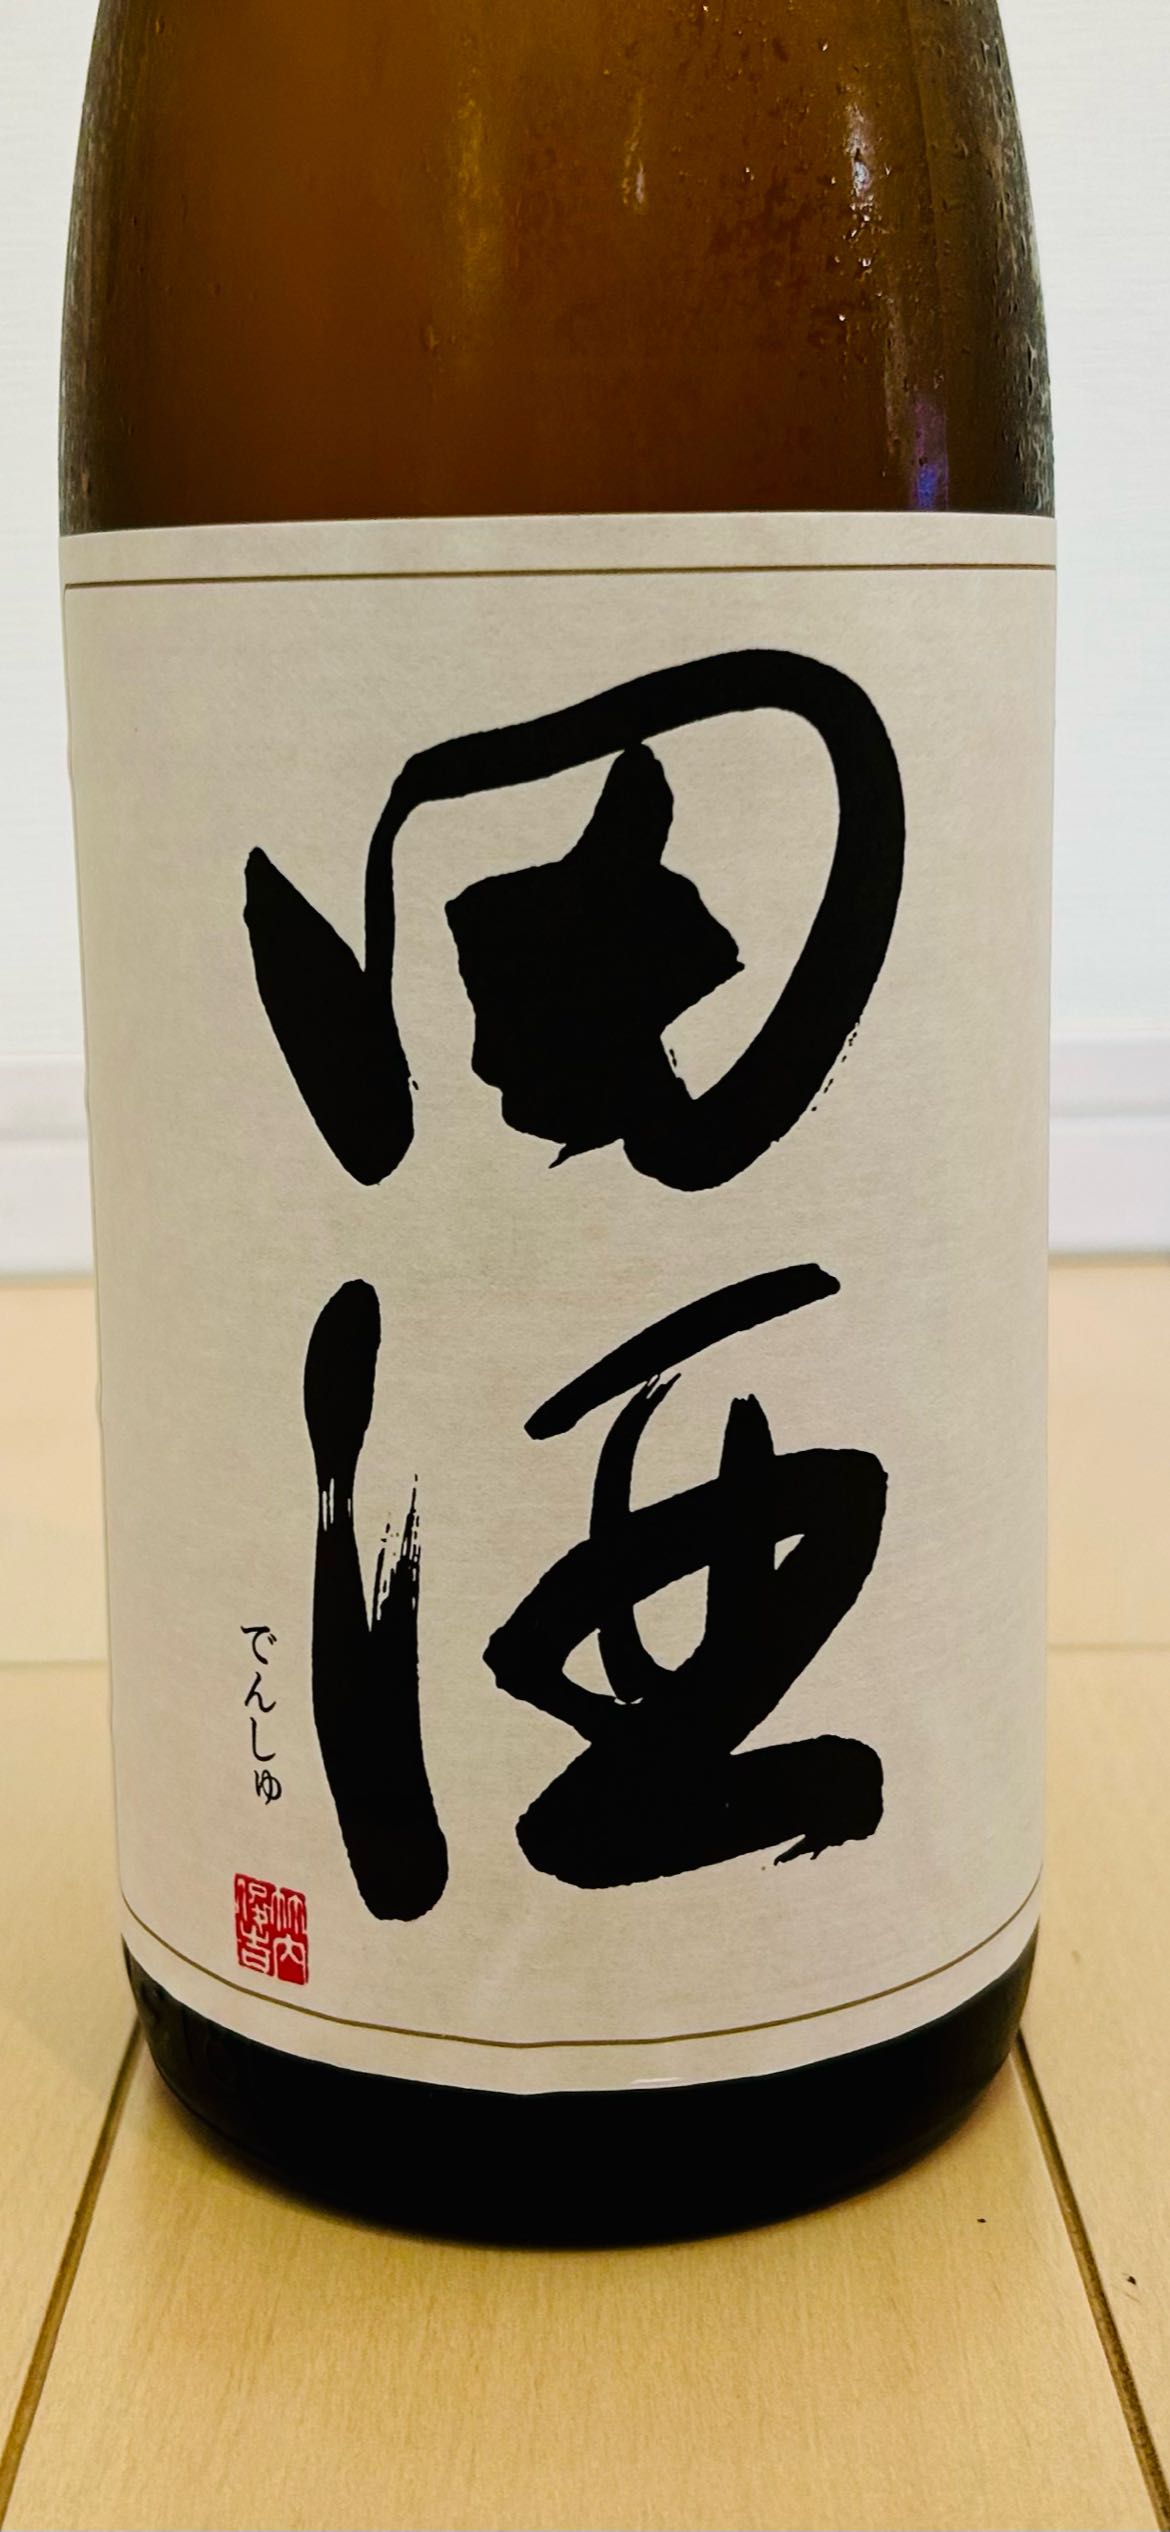 田酒
でんしゅ
竹内
俊吉